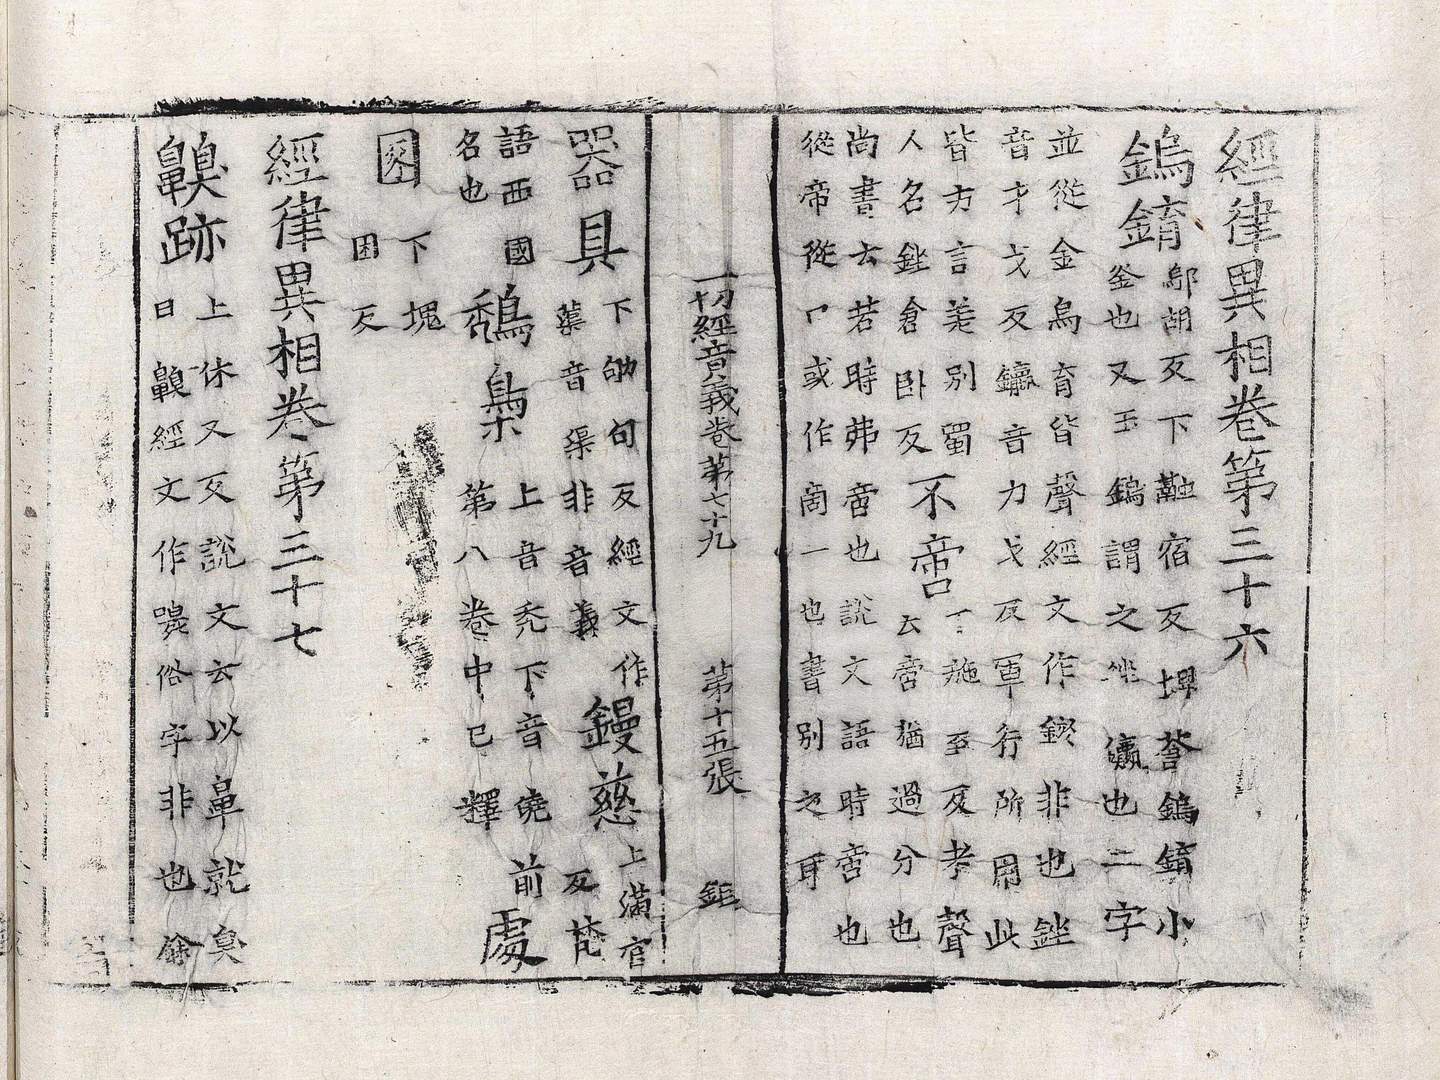 經律異相卷第三十六
鎢錥
鄔胡反下融宿反埤蒼鎢錥小
釜也又玉鎢謂之銼鑹也二字
並從金烏育皆聲經文作鏘非也銼
音才戈反鑹音力戈反軍行所用此
皆方言羙別蜀
人名銼倉卧反
不啻
丁施至反考聲
云啻猶過分也
尚書云若時弗啻也說文語時啻也
從帝從口或作啇一也書別之耳
一切經音義卷第七十九 第十五張 鉅
器具
下劬句反經文作
蕖音渠非音義
鏝慈
上滿官
反梵
語西國
名也
鵚梟
上音禿下音澆前
第八卷中已釋
處
下塊
困反
經律異相卷第三十七
齅跡
上休又反說文云以鼻就臭
曰齅經文作嗅俗字非也餘